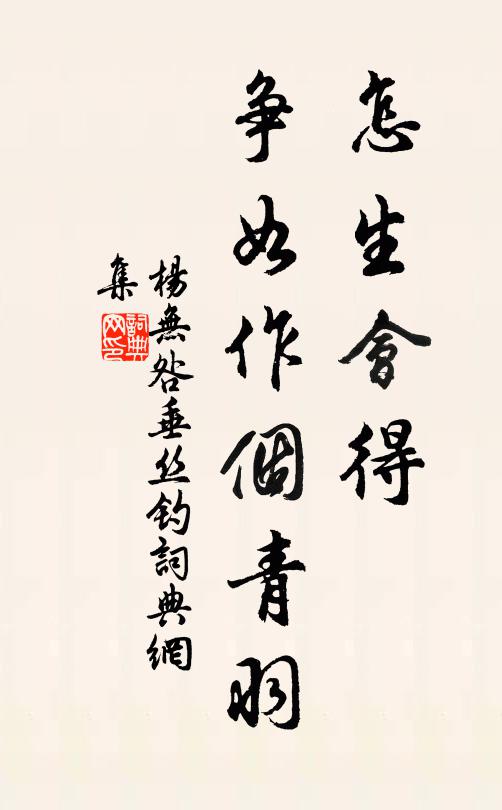 怎生會得
争如作個青羽
楊無咎垂丝釣詞典網
集
詞典
网印